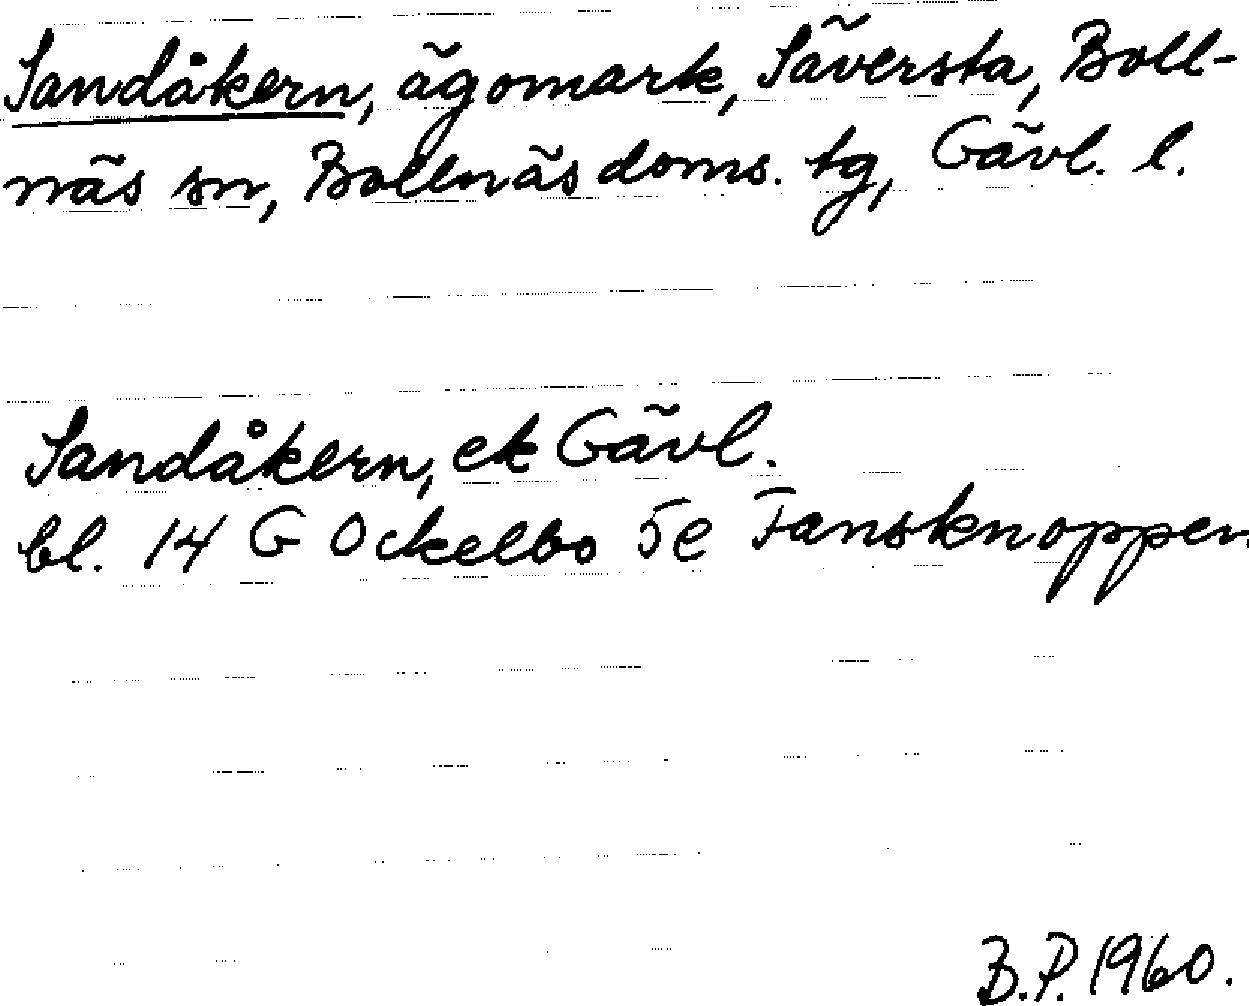 Sandåkern, ägomark, Säversta, Boll-
näs sn, Bollnäs doms. tg, Gävl. l.
Sandåkern, ek Gävl.
bl. 14 G Ockelbo 5e Fansknoppen
B.P. 1960.